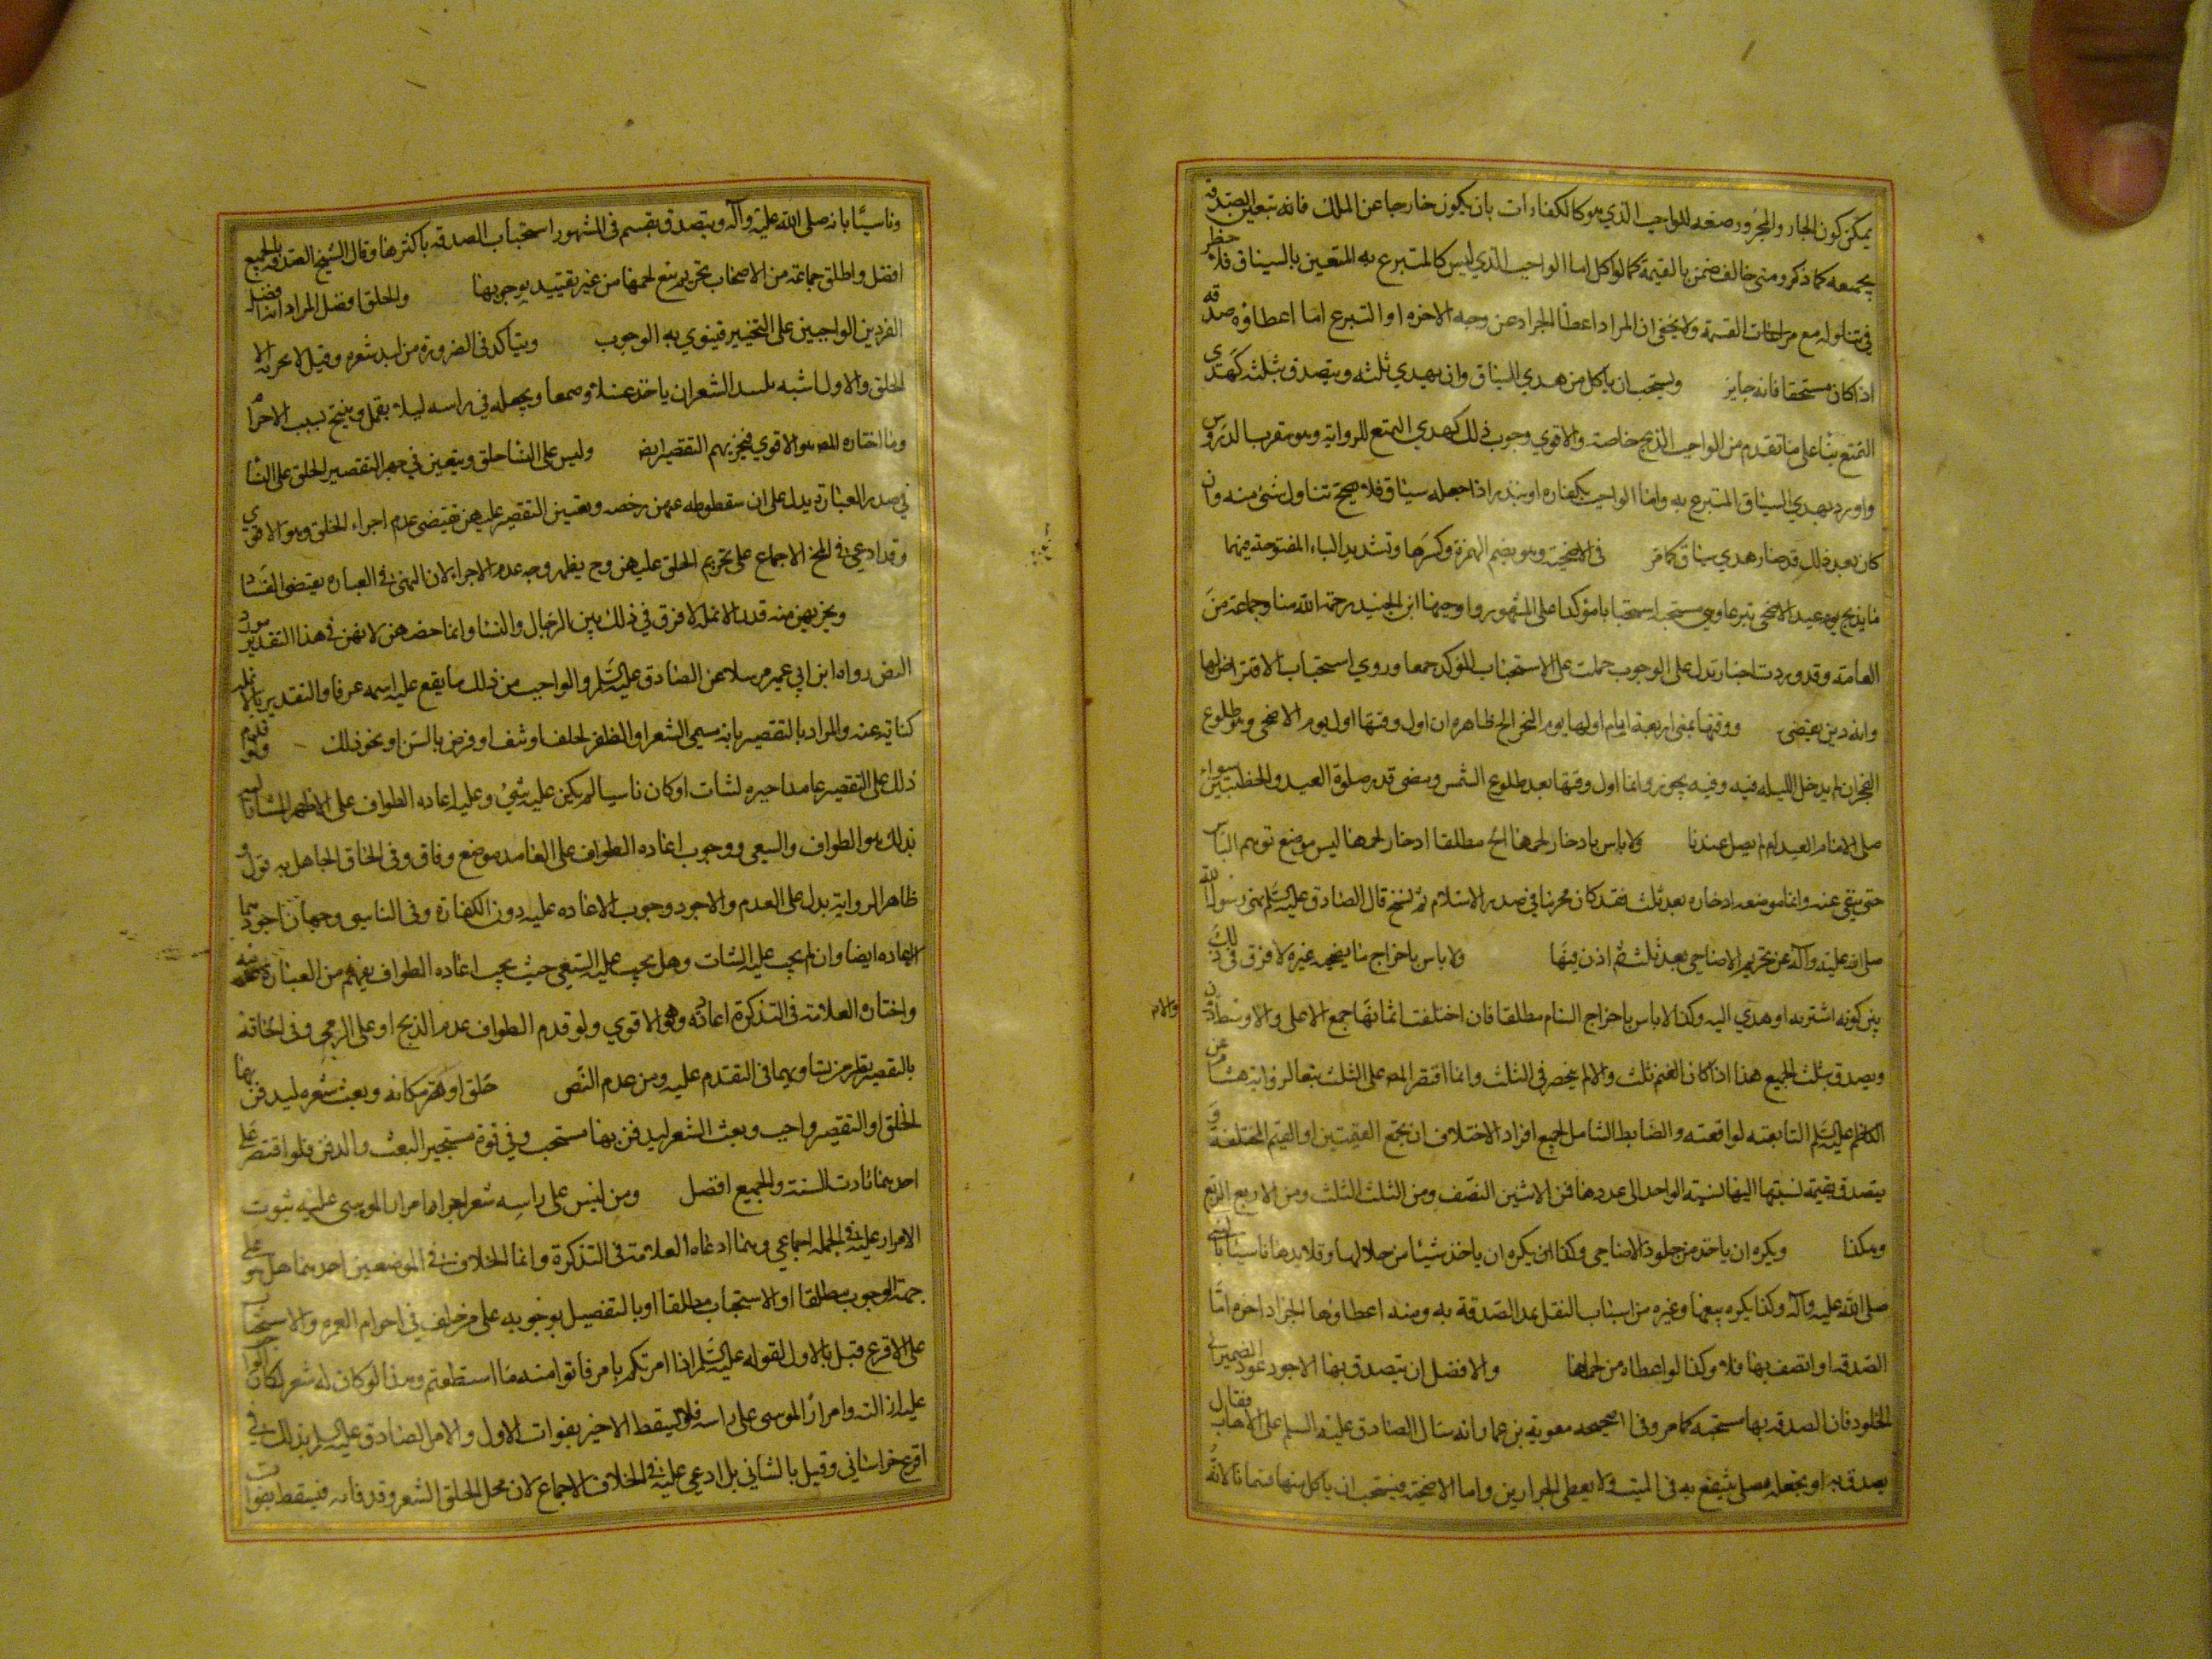 يمكن كون الجار والمجرور صفة للواجب الذي هو كالكفارات بان يكون خارجا عن الملك فانه تبعين الصدقة
بجميعه كما ذكر ومتى خالف ضمن بالقيمة كما لو اكل اما الواجب الذي ليس كالمتبرع به المتعين بالسياق فلا حظر
في تناوله مع مراعات القسمة ولا يخفى ان المراد اعطا الجزار عن وجه الاجره او التبرع اما اعطاؤه صدقه
اذا كان مستحقا فانه جايز ويستحب ان ياكل من هدي السياق وان يهدي ثلثه ويتصدق بثلثه كهدي
التمتع بناء على ما تقدم من الواجب الذبح خاصة والاقوي وجوب ذلك كهدي التمتع للرواية وهو مقرب الدروس
واورد بهدي السياق المتبرع به واما الواجب بكفاره او بنذر اذا جعله سياق فلا يصح تناول شئ منه وان
كان بعد ذلك قد صار هدي سياق كما مر في الاضحية وهو بضم الهمزة وكسرها وتشديد الياء المفتوحة فيهما
ما يذبح يوم عيد الاضحى تبرعا وهي مستحبة استحبابا مؤكدا على المشهور واوجبها ابن الجنيد رحمة الله منا وجماعة من
العامة وقد وردت اخبار تدل على الوجوب حملت على الاستحباب المؤكد جمعا وروي استحباب الاقتراض لها
وانه دين يقضى ووقتها بمنى اربعة ايام اولها يوم النحر الخ ظاهره ان اول وقتها اول يوم الاضحى وهو طلوع
الفجر ان لم يدخل الليله فيه وفيه تجوز وانما اول وقتها بعد طلوع الشمس ومضى قدر صلوة العيد والخطبتين سواء
صلى الامام العيد ام لم يصل عندنا ولا باس بادخار لحمها الخ مطلقا ادخار لحمها ليس موضع توهم الباس
حتى ينفى عنه وانما موضعه ادخاره بعد ثلث فقد كان محرما في صدر الاسلام ثم نسخ قال الصادق عليه السلم نهى رسول الله
صلى الله عليه وآله عن تحريم الاضاحي بعد ثلث ثم اذن فيها ولا باس باخراج ما يضحيه غيره لا فرق في ذلك
بين كونه اشتريه او هدي اليه وكذا لا باس باخراج السنام مطلقا فان اختلفت اثمانها جمع الاعلى والاوسط والادون
والادن
ويصدق بثلث الجميع هذا اذا كان القيم ثلث والا لم ينحصر في الثلث وانما اقتصر المص على الثلث تبعا لرواية هشام عن
الكاظم عليه السلم التابعة لواقعته والضابط الشامل لجميع افراد الاختلاف ان يجمع القيمتين او القيم المختلفة و
يتصدق بقيمة نسبتها اليها نسبة الواحد الى عددها فمن الاثنين النصف ومن الثلث الثلث ومن الاربع الربع
وهكذا ويكره ان ياخذ من جلود الاضاحي وكذا يكره ان ياخذ شيئا من جلالها وقلايدها تاسيا بالنبي
صلى الله عليه وآله وكذا يكره بيعها وغيره من اسباب النقل عدا الصدقة به ومنه اعطاؤها الجزار اجره اما
الصدقه او اتصف بها فلا وكذا لو اعطاه من لحمها والافضل ان يتصدق بها الاجود عود الضمير الى
الجلود فان الصدقه بها مستحبه كما مر وفى صحيحه معوية بن عمار انه سال الصادق عليه السلم على الاهاب فقال
يصدق به او يجعله مصلى ينتفع به فى البيت ولا يعطى الجزارين واما الاضحية فيستحب ان ياكل منها
وتاسيا بانه صلى الله عليه وآله ويتصدق بقسم فى المشهور استحباب الصدقه باكثرها وقال الشيخ الصدقه بالجميع
افضل واطلق جماعة من الاصحاب تحريم بيع لحمها من غير تقييد بوجوبها والحلق افضل المراد انه افضل
الفردين الواجبين على التخيير فينوي به الوجوب ويتاكد فى الضرورة من لبد شعره وقيل لا يجزيه الا
الحلق والاول اشبه تلبيد الشعر ان ياخذ عسلا وصمغا ويجعله في راسه ليلا يقمل ويتسخ بسبب الاحرام
وما اختاره المص هو الاقوي فيجزيهم التقصير ايض وليس على النسا حلق ويتعين في حقهن التقصير الحلق على النسا
في صدر العبارة يدل على ان سقوطه عنهن رخصه وتعيين التقصير عليهن يقتضى عدم اجزاء الحلق وهو الاقوي
وقد ادعى في المخ الاجماع على تحريم الحلق عليهن وح يظهر وجه عدم الاجزاء لان النهى في العباره يقتضى الفساد
ويجزيهن منه قدر الانمله لا فرق في ذلك بين الرجال والنسا وانما خصهن لانهن في هذا التقدير مورد
النص رواه ابن ابي عمير مرسلا عن الصادق عليه السلم والواجب من ذلك ما يقع عليه اسمه عرفا والتقدير بالانمله
كناية عنه والمراد بالتقصير بابنه مسمى الشعر او الظفر لحلف او نتف او قرض بالسن او نحو ذلك ولو قدم
ذلك على التقصير عامدا جبره بشات او كان ناسيا لم يكن عليه شئ وعليه اعاده الطواف على الاظهر
بذلك هو الطواف والسعي ووجوب اعاده الطواف على العامد موضع وفاق وفى الحاق الجاهل به قول و
ظاهر الرواية يدل على العدم والاجود وجوب الاعاده عليه دون الكفارة وفى الناسي وجهان اجودهما
الاعاده ايضا وان لم يجب عليه الشات وهل يجب عليه السعي حيث يجب اعاده الطواف يفهم من العبارة عدمه
واختاره العلامة فى التذكرة اعادته وهو الاقوي ولو قدم الطواف على الذبح او على الرمي وفى الحاقه
بالتقصير نظر من تساويهما فى التقدم عليه ومن عدم النص حلق او قصر مكانه وبعث شعره ليدفن بها
الحلق او التقصير واجب وبعث الشعر ليدفن بها مستحب وفي قوة مستحبين البعث والدفن فلو اقتصر على
احدهما تادت السنة والجميع افضل ومن ليس على راسه شعر اجزاه امرار الموسى عليه ثبوت
الامرار عليه في الجمله اجماعي وممن ادعاه العلامة فى التذكرة وانما الخلاف في الموضعين احدهما هل هو على
جهة الوجوب مطلقا او الاستحباب مطلقا او بالتفصيل بوجوبه على من حلق في احرام العمره والاستحباب
على الاقرع قيل بالاول لقوله عليه السلم اذا امرتكم بامر فاتوا منه ما استطعتم وهذا لو كان له شعر لكان الواجب
عليه ازالته وامرار الموسى على راسه فلا يسقط الاخير بفوات الاول والامر الصادق عليه السلم بذلك في
اقرع خراساني وقيل بالثاني بل ادعى عليه في الخلاف الاجماع لان محل الحلق الشعر وقد فات فيسقط بفوات